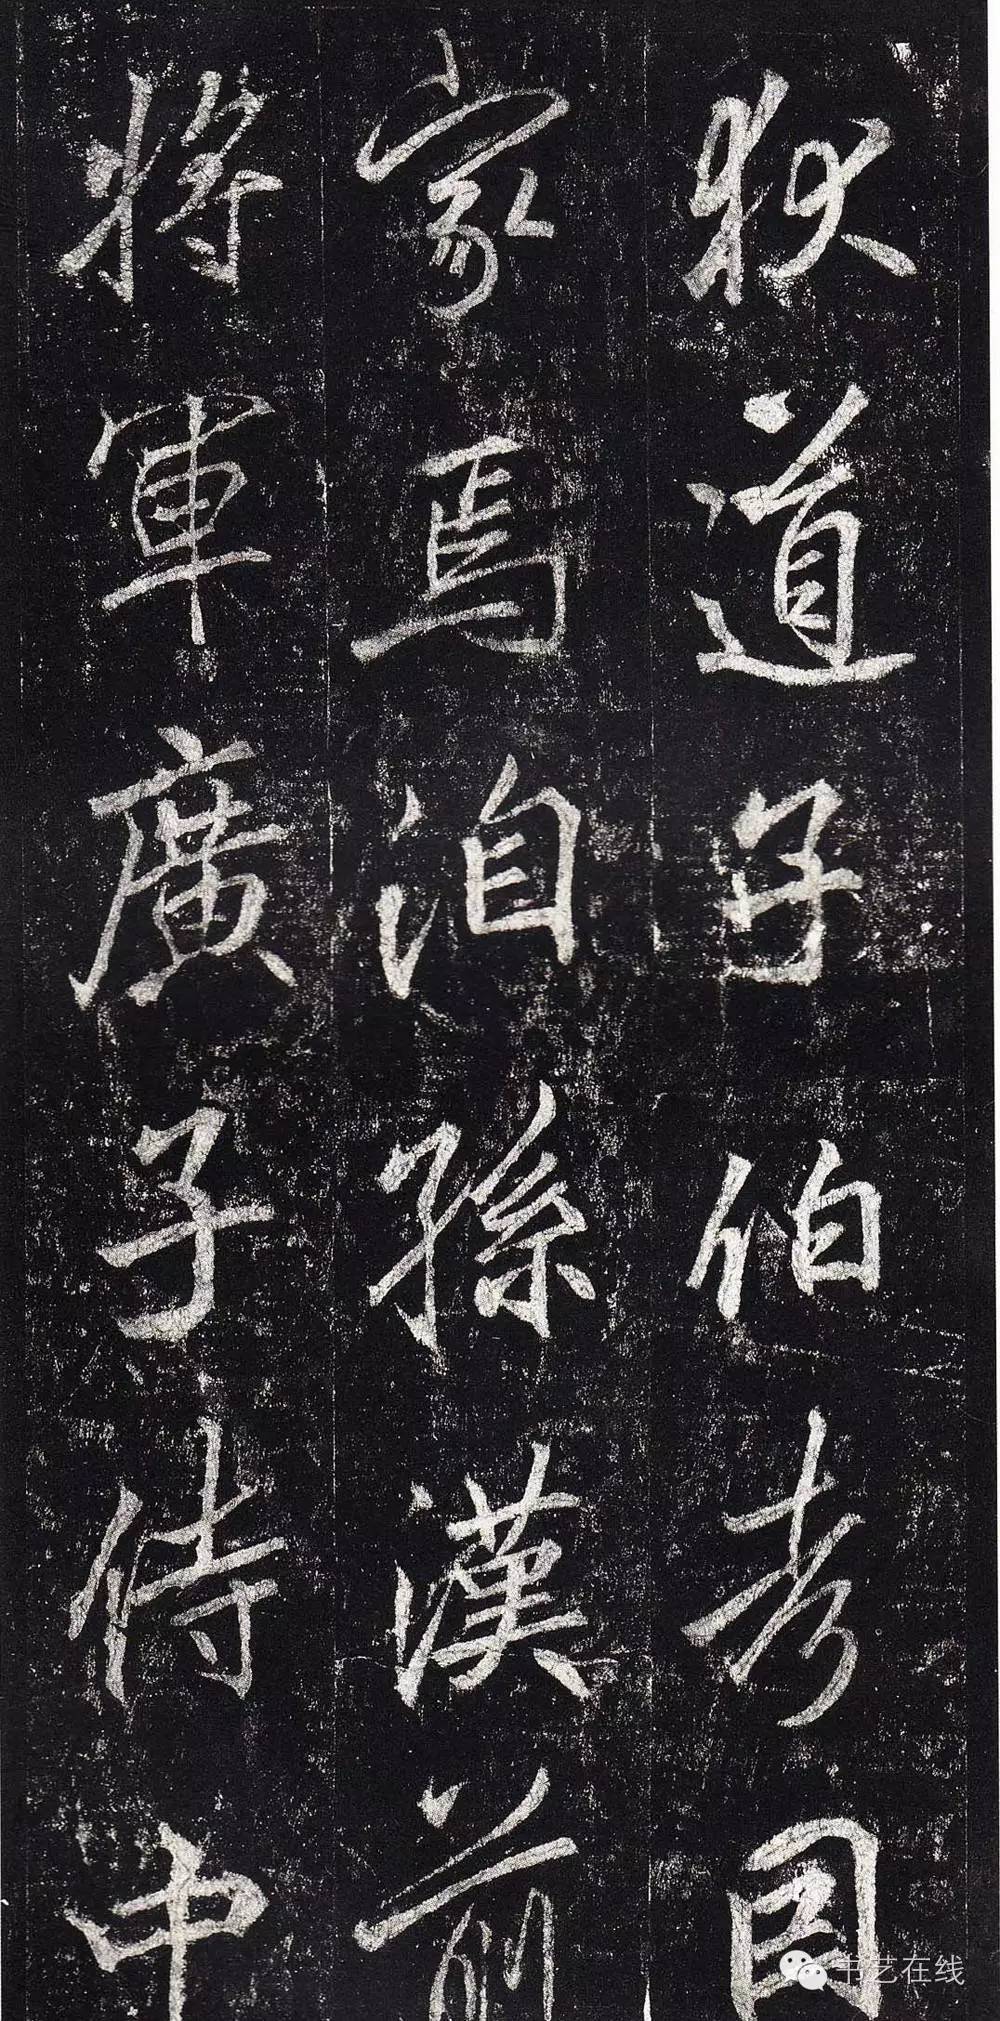 狄道子伯考因
家焉洎孫漢前
將軍廣子侍中
书艺在线